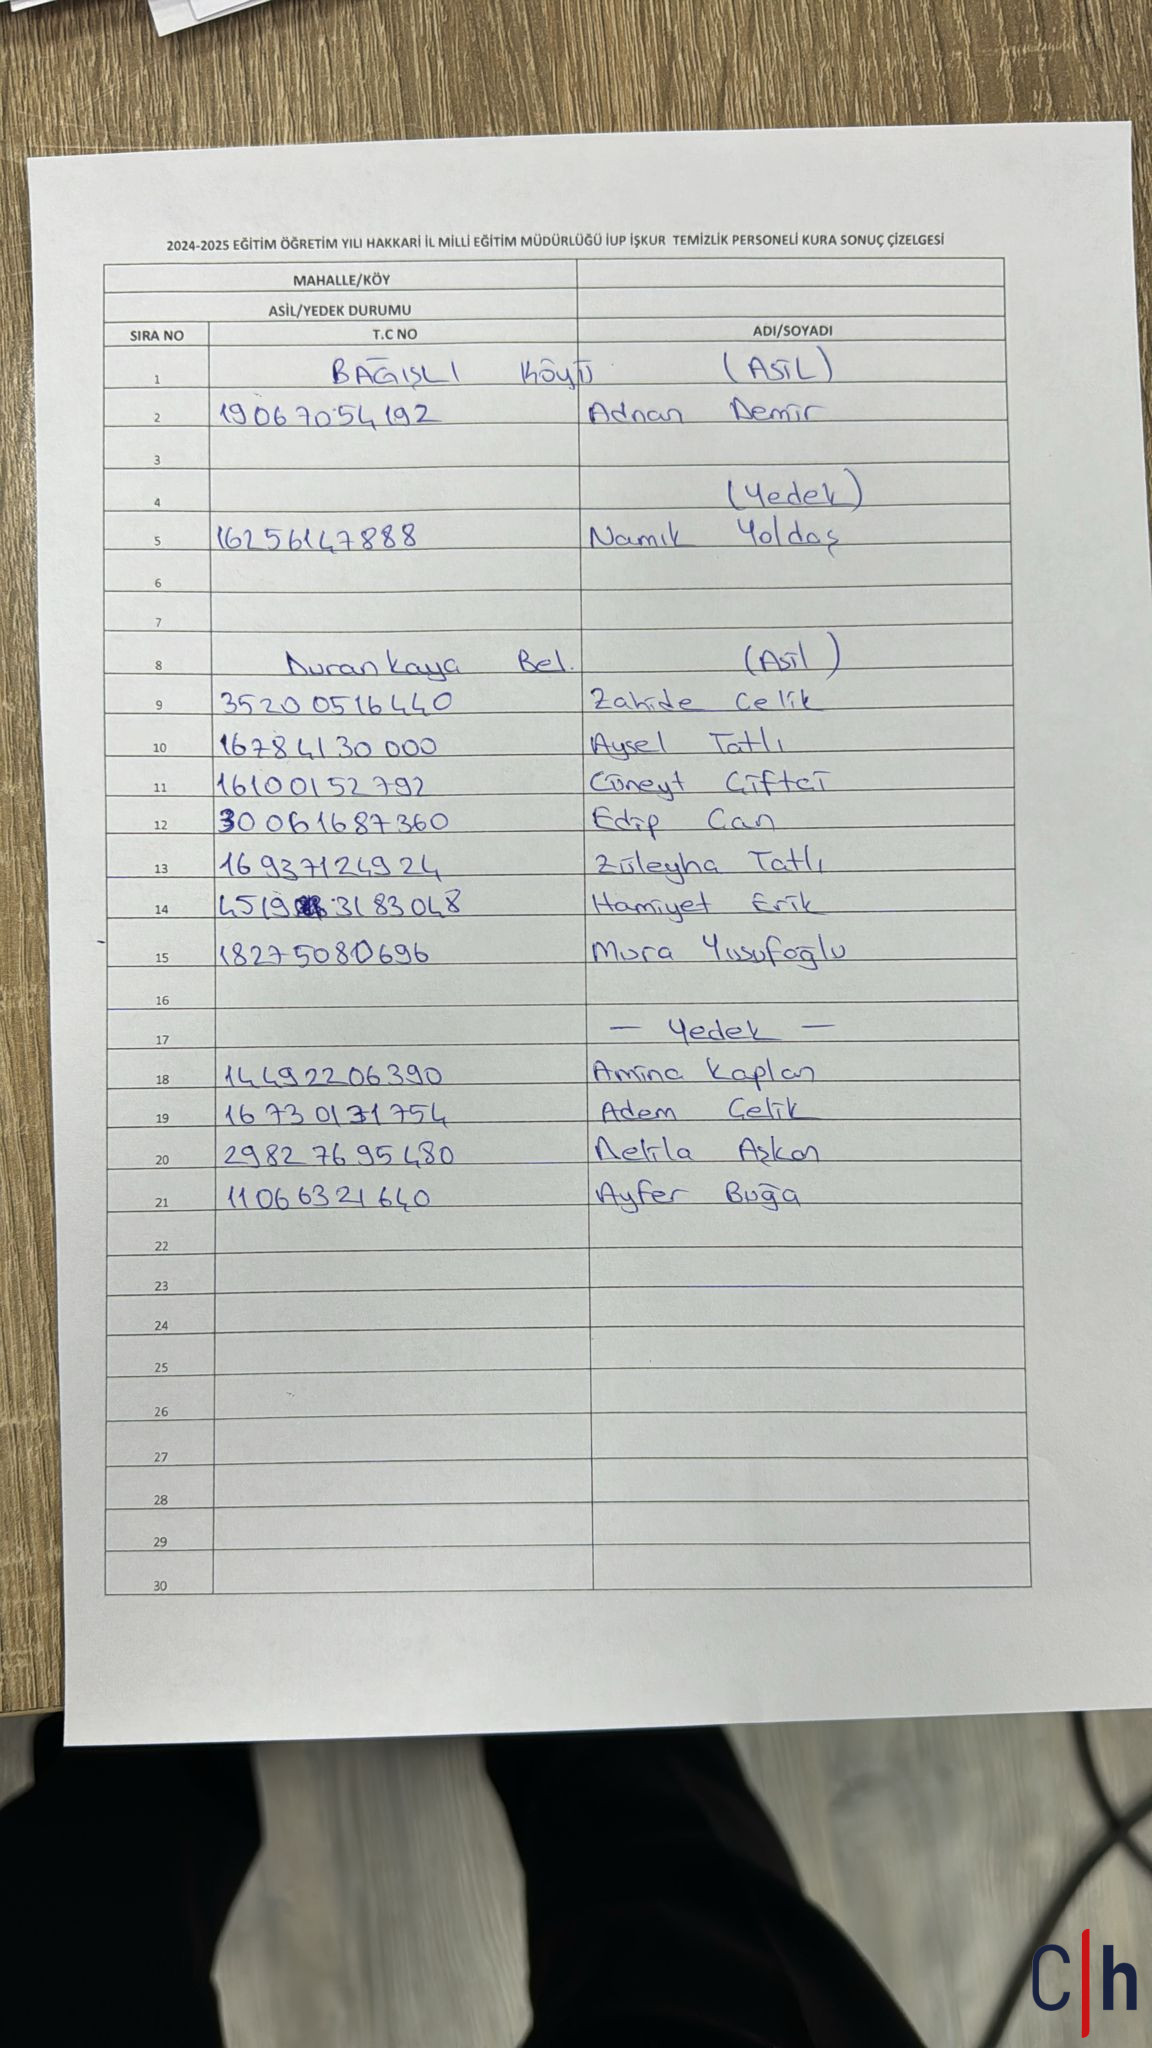 2024-2025 EĞİTİM ÖĞRETİM YILI HAKKARİ İL MİLLİ EĞİTİM MÜDÜRLÜĞÜ İUP İŞKUR TEMİZLİK PERSONELİ KURA SONUÇ ÇİZELGESİ
MAHALLE/KÖY
ASİL/YEDEK DURUMU
SIRA NO T.C NO ADI/SOYADI
1 BAĞIŞLI KÖYÜ (ASİL)
2 19067054192 Adnan Demir
3
4 (Yedek)
5 16256147888 Namık Yoldaş
6
7
8 Durankaya Bel. (Asil)
9 35200516440 Zahide Çelik
10 16784130000 Aysel Tatlı
11 16100152792 Cüneyt Çiftçi
12 30061687360 Edip Can
13 16937124924 Züleyha Tatlı
14 4519 3183048 Hamiyet Erik
15 18275080696 Mura Yusufoğlu
16
17 — Yedek —
18 14492206390 Amina Kaplan
19 16730131754 Adem Çelik
20 29827695480 Delila Aşkan
21 11066321640 Ayfer Buğa
22
23
24
25
26
27
28
29
30
C|h